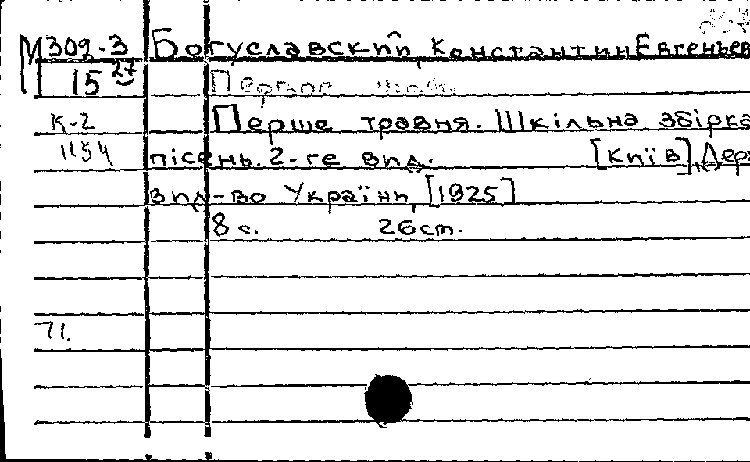 М309-3 Богуславский, Константин Евгеньев
15 27 Первое
К-2 Перше травня. Шкільна збірка
1154 пісень. 2-ге вид. [Київ], Дер
вид-во України, [1925]
8 с. 26 cm.
71.